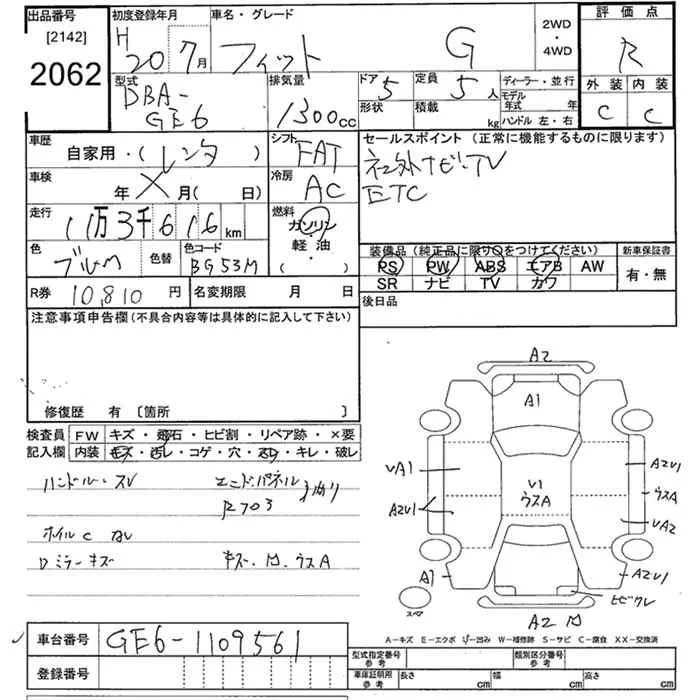 出品番号
[2142]
2062
初度登録年月
H 20 7月
車名・グレード
フィット G
2WD
・
4WD
評価点
R
外装 内装
C C
型式
DBA-
GE6
排気量
1300cc
ドア 5
定員 5 人
ディーラー・並行
モデル
年式 年
形状
積載 kg
ハンドル 左・右
車歴
自家用・(レンタ)
シフト
FAT
セールスポイント (正常に機能するものに限ります)
社外ナビ・TV
ETC
車検
年 X 月(日)
冷房
AC
走行
11万3千616km
燃料
ガソリン
軽油
(・)
色
ブルーM
色替
色コード
BG53M
装備品(純正品に限り○をつけてください)
新車保証書
PS PW ABS エアB AW
SR ナビ TV カワ
有・無
R券 10,810 円
名変期限 月 日
後日品
注意事項申告欄(不具合内容等は具体的に記入して下さい)
修復歴 有 [箇所 ]
検査員
記入欄
FW キズ・飛石・ヒビ割・リペア跡・×要
内装 キズ・汚レ・コゲ・穴・スレ・キレ・破レ
ハンドル・スレ
エンドパネル
R703
ホイルC
Dミラーキズ
キズ・凹・ウスA
A2
A1
VA1
A2V1
V1
ウスA
A2V1
ウスA
VA2
A1
A2V1
ヒビワレ
スペア
A2 凹
A-キズ E-エクボ U-凹み W-補修跡 S-サビ C-腐食 XX-交換済
車台番号
GE6-1109561
登録番号
型式指定番号
参考
類別区分番号
参考
車庫証明用
参考
長さ cm
幅 cm
高さ cm